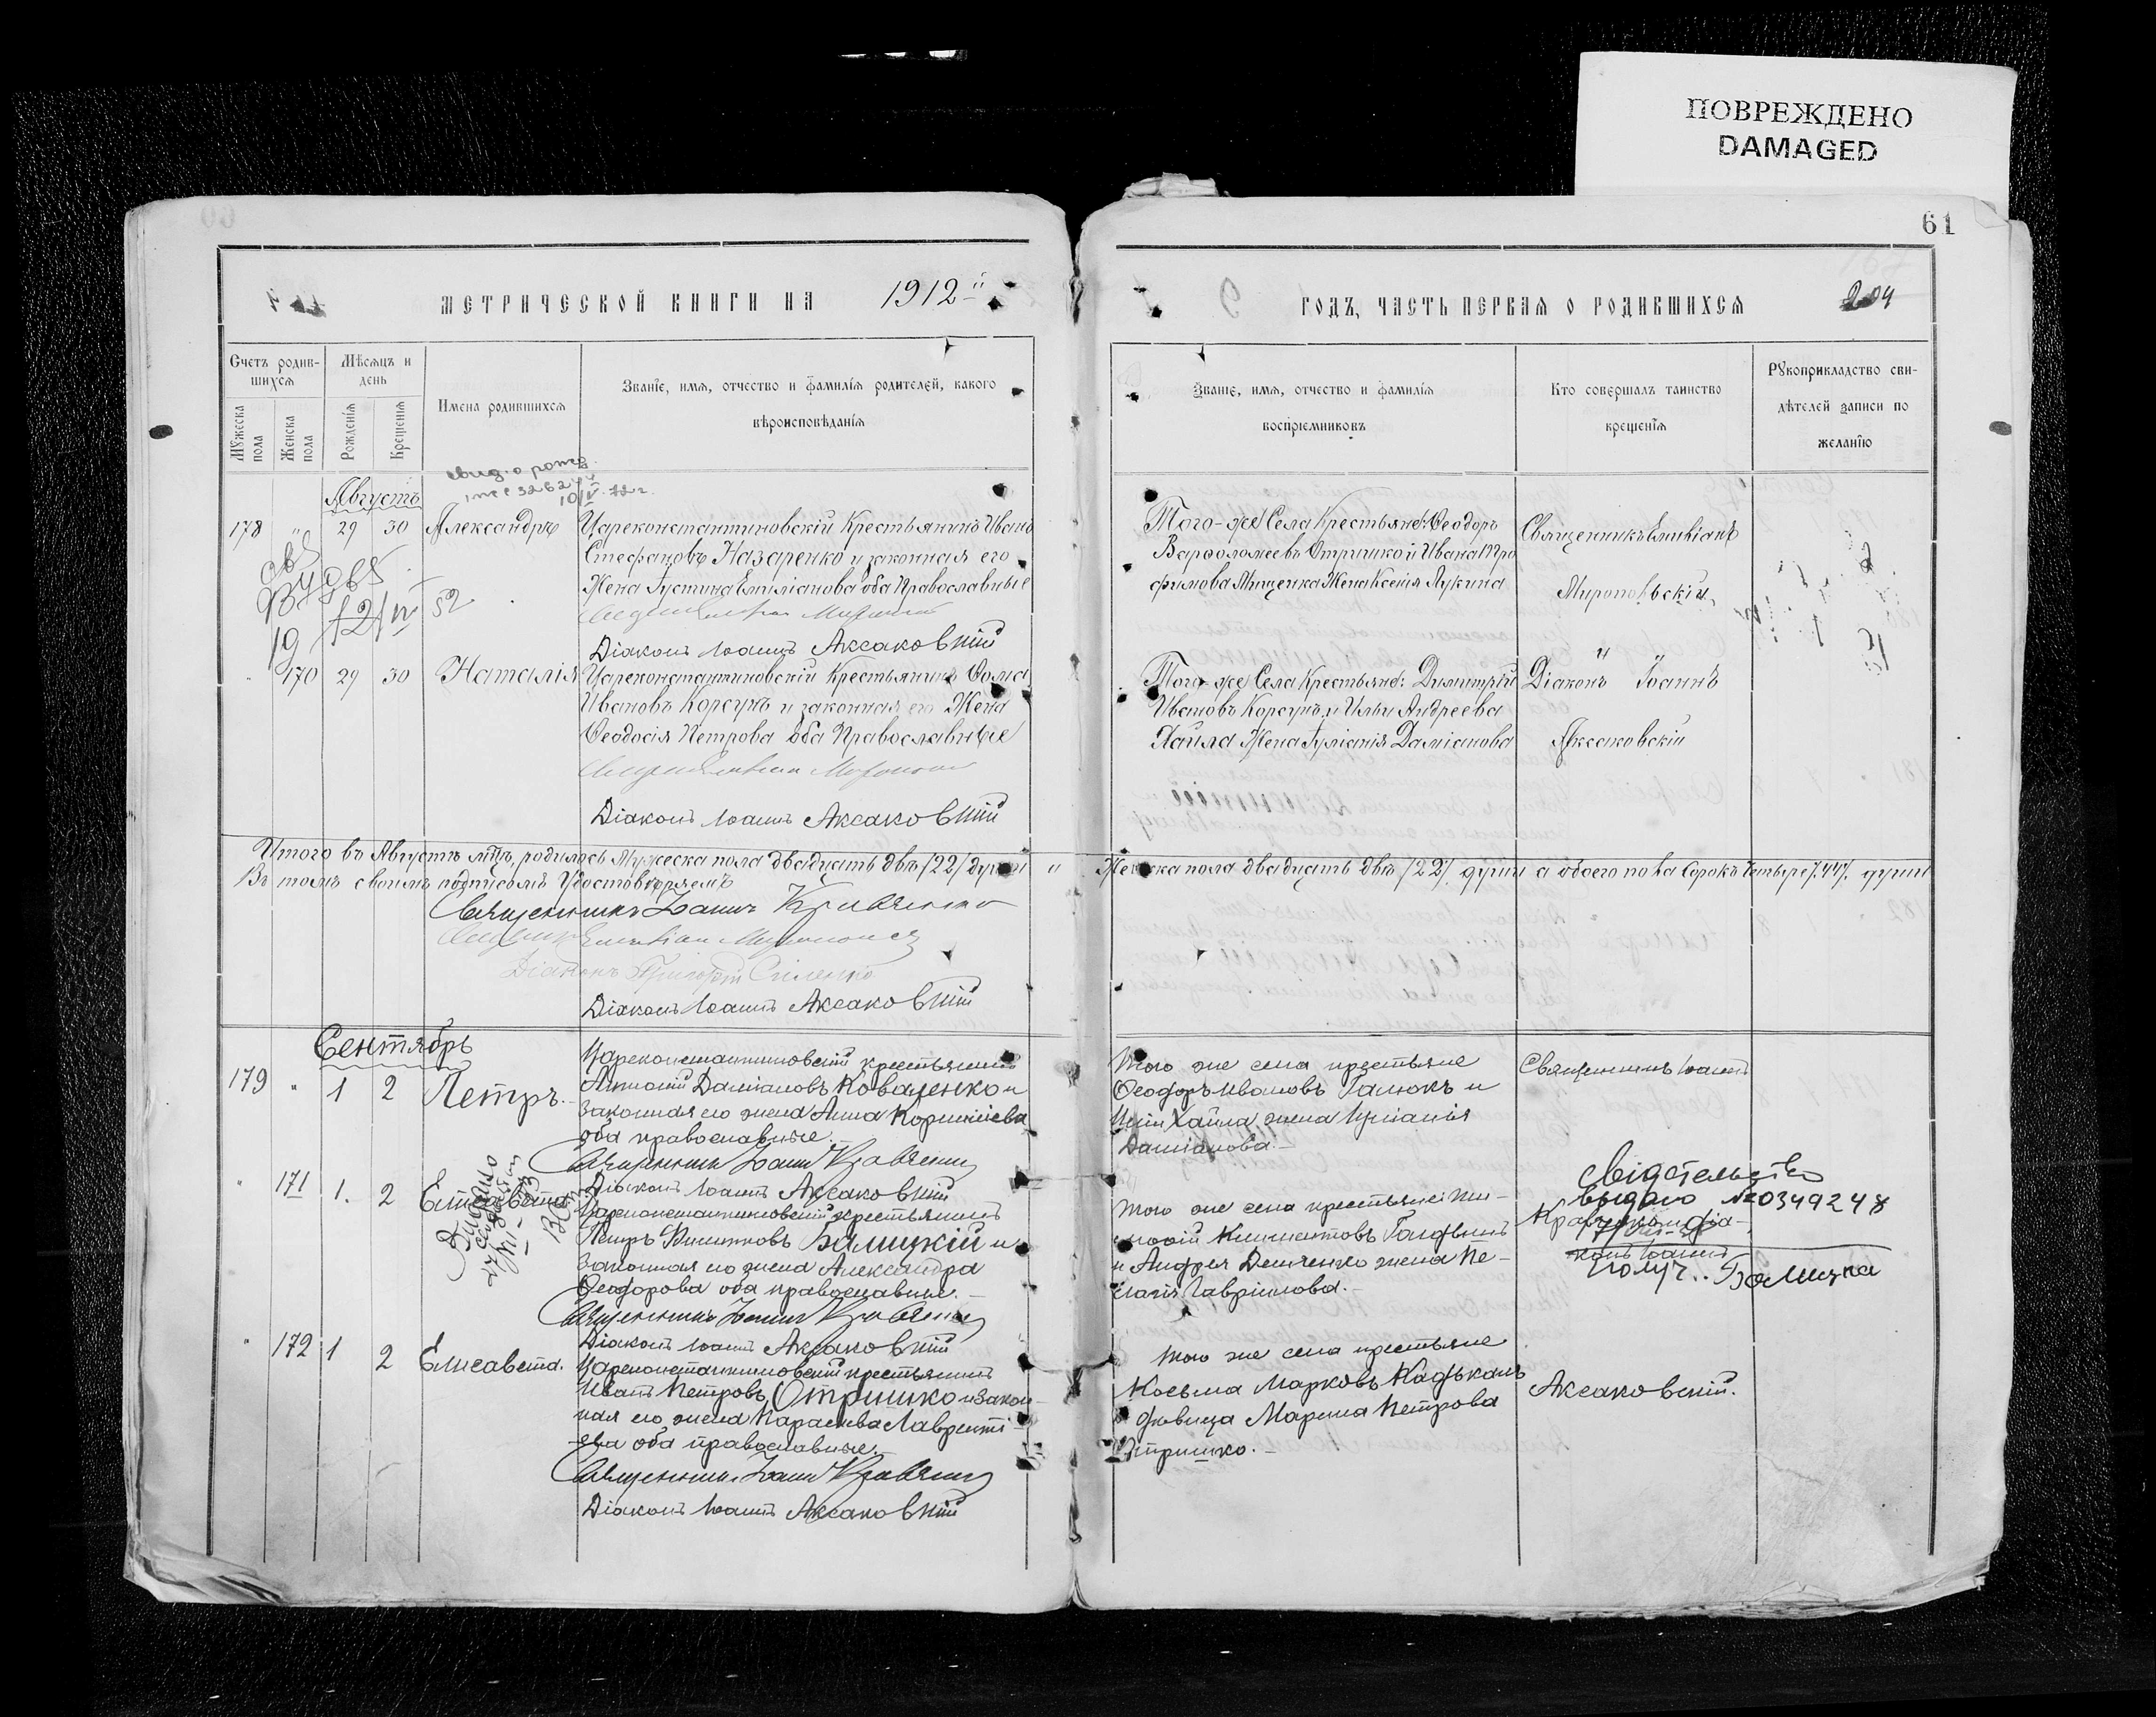 ПОВРЕЖДЕНО
DAMAGED
61
МЕТРИЧЕСКОЙ КНИГИ НА 1912
ГОДЪ, ЧАСТЬ ПЕРВАЯ О РОДИВШИХСЯ
204
Счетъ родив-
шихся
Мужеска пола
Женска пола
Мѣсяцъ и
день
Рожденія
Крещенія
Имена родившихся
Званіе, имя, отчество и фамилія родителей, какого
вѣроисповѣданія
Званіе, имя, отчество и фамилія
воспріемниковъ
Кто совершалъ таинство
крещенія
Рукоприкладство сви-
дѣтелей записи по
желанію
Августъ
178 " 29 30 Александръ
Цареконстантиновскій Крестьянинъ Иванъ
Стефановъ Назаренко и законная его
Жена Іустина Емиліанова оба Православные
Діаконъ Іоаннъ Аксаковскій
Того-же Села Крестьяне: Ѳеодоръ
Варѳоломеевъ Отришко и Ивана Тро
фимова Мищенка Жена Ксенія Лукина
Священникъ Емиліанъ
Миропольскій
170 29 30 Наталія
Цареконстантиновскій Крестьянинъ Ѳома
Ивановъ Корсунъ и законная его Жена
Ѳеодосія Петрова оба Православные
Діаконъ Іоаннъ Аксаковскій
Того-же Села Крестьяне: Димитрій
Ивановъ Корсунъ и Ильи Андреева
Хайла Жена Іуліанія Даміанова
Діаконъ Іоаннъ
Аксаковскій
Итого въ Августѣ м-цѣ, родилось Мужеска пола двадцать двѣ /22/ души "
Женска пола двадцать двѣ /22/ души а обоего пола Сорокъ Четыре /44/ души
Въ томъ своимъ подписомъ Удостовѣряемъ
Священникъ Іоаннъ Кравченко
Діаконъ Григорій
Діаконъ Іоаннъ Аксаковскій
Сентябрь
179 " 1 2 Петръ.
Цареконстантиновскій крестьянинъ
Антоній Даміановъ Коваленко и
законная его жена Анна Корниліева
оба православные.
Священникъ Іоаннъ Кравченко
Діаконъ Іоаннъ Аксаковскій
Того же села крестьяне
Ѳеодоръ Ивановъ Галюкъ и
Иліи Хайла жена Иуліанія
Даміанова.
Священникъ Іоаннъ
" 171 1. 2 Елисавета
Цареконстантиновскій крестьянинъ
Петръ Балицкій и
законная его жена Александра
Ѳеодорова оба православные.
Священникъ Іоаннъ Кравченко
Діаконъ Іоаннъ Аксаковскій
Того же села крестьяне: Ти-
моѳій Климентовъ
и Андрея Демченко жена Пе-
лагія Гавріилова.
Кравченко и діа-
конъ Іоаннъ
свідетельство
выдано №0349248
Балицка
" 172 1 2 Елисавета.
Цареконстантиновскій крестьянинъ
Иванъ Петровъ Отришко и закон-
ная его жена Параскева Лавренті-
ева оба православные.
Священникъ Іоаннъ Кравченко
Діаконъ Іоаннъ Аксаковскій
Того же села крестьяне
Косьма Марковъ
дѣвица Марина Петрова
Отришко.
Аксаковскій.